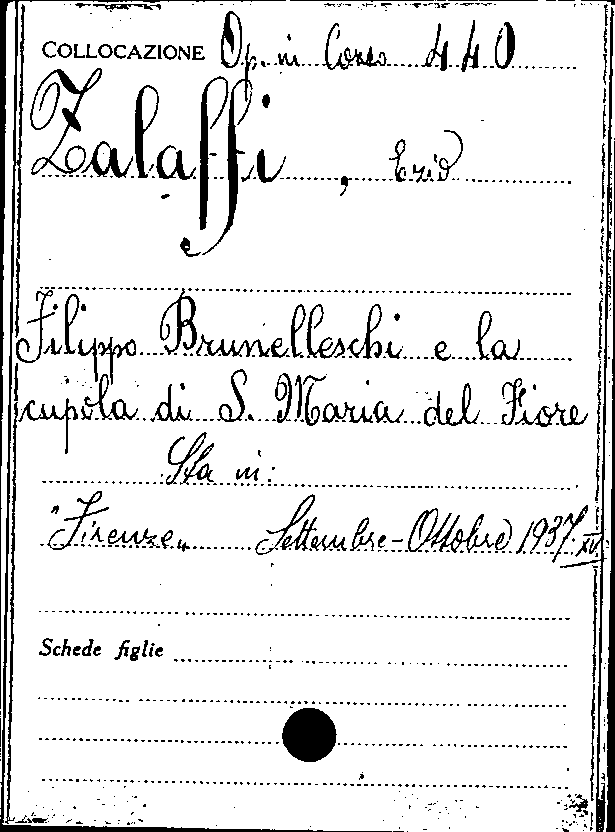 COLLOCAZIONE Op. in Corso 440
Zalaffi, Ezio
Filippo Brunelleschi e la
cupola di S. Maria del Fiore
Sta in:
"Firenze" Settembre-Ottobre 1937. XV.
Schede figlie